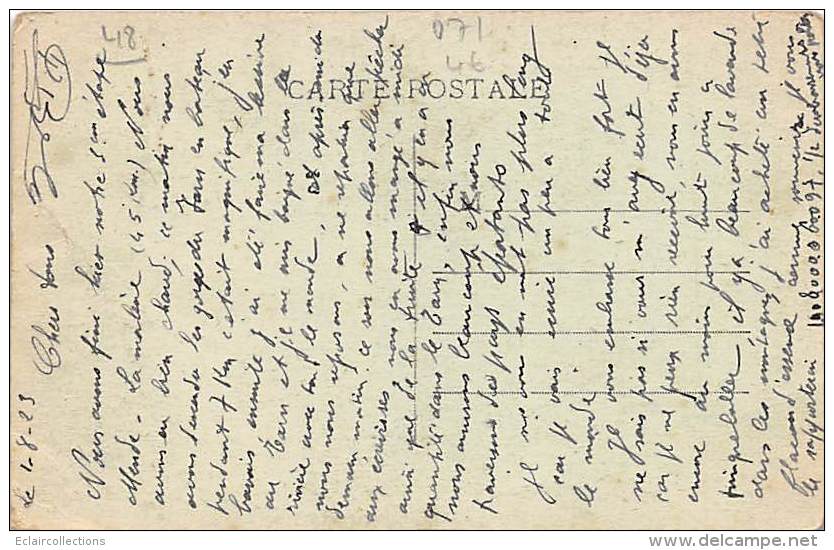 48
071
46
CARTE POSTALE
le 1-8-23
Chers tous
Nous avons fini hier notre 5em étape
Mende - La malène (45 Km.) Nous
avons eu bien chaud; ce matin nous
avons descendu les gorges du Tarn en bateau
pendant 7 Km c'était magnifique, j'en
ensuite j'ai été faire ma lessive
au Tarn et je me suis baigné dans la
rivière avec tout le monde, après midi
nous nous reposons, a ne repartir que
demain matin. ce soir nous allons aller pêcher
aux écrevisses nous en avons mangé a midi
ainsi que de la truite et il y en a en
quantité dans le Tarn, enfin nous
nous amusons beaucoup et nous
traversons des pays épatants
Je ne vous en met pas plus long
car je vais écrire un peu a tout
le monde
Je vous embrasse tous bien fort je
ne sais pas si vous m'avez écrit déja
car je ne peux rien recevoir nous en avons
encore au moins pour huit jours à
il y a beaucoup de lavande
dans les montagnes j'ai acheté un petit
flacon d'essence comme souvenir je vous
le rapporterai
Eclaircollections
www.delcampe.net